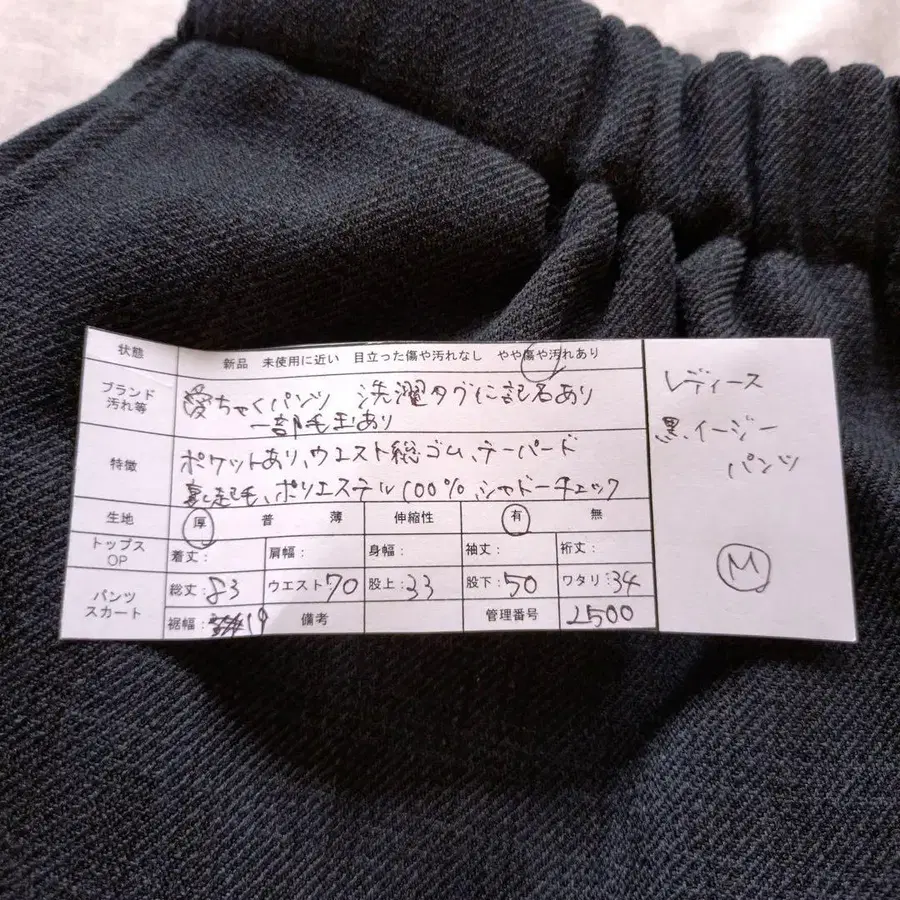 状態 新品 未使用に近い 目立った傷や汚れなし やや傷や汚れあり
ブランド 汚れ等 愛ちゃくパンツ 洗濯タグに記名あり
一部毛玉あり
特徴 ポケットあり、ウエスト総ゴム、テーパード
裏起毛、ポリエステル100%、シャドーチェック
生地 厚 普 薄 伸縮性 有 無
トップス OP 着丈: 肩幅: 身幅: 袖丈: 裄丈:
パンツ スカート 総丈:83 ウエスト70 股上:33 股下:50 ワタリ:34
裾幅: 19 備考 管理番号 2500
レディース
黒、イージー
パンツ
M